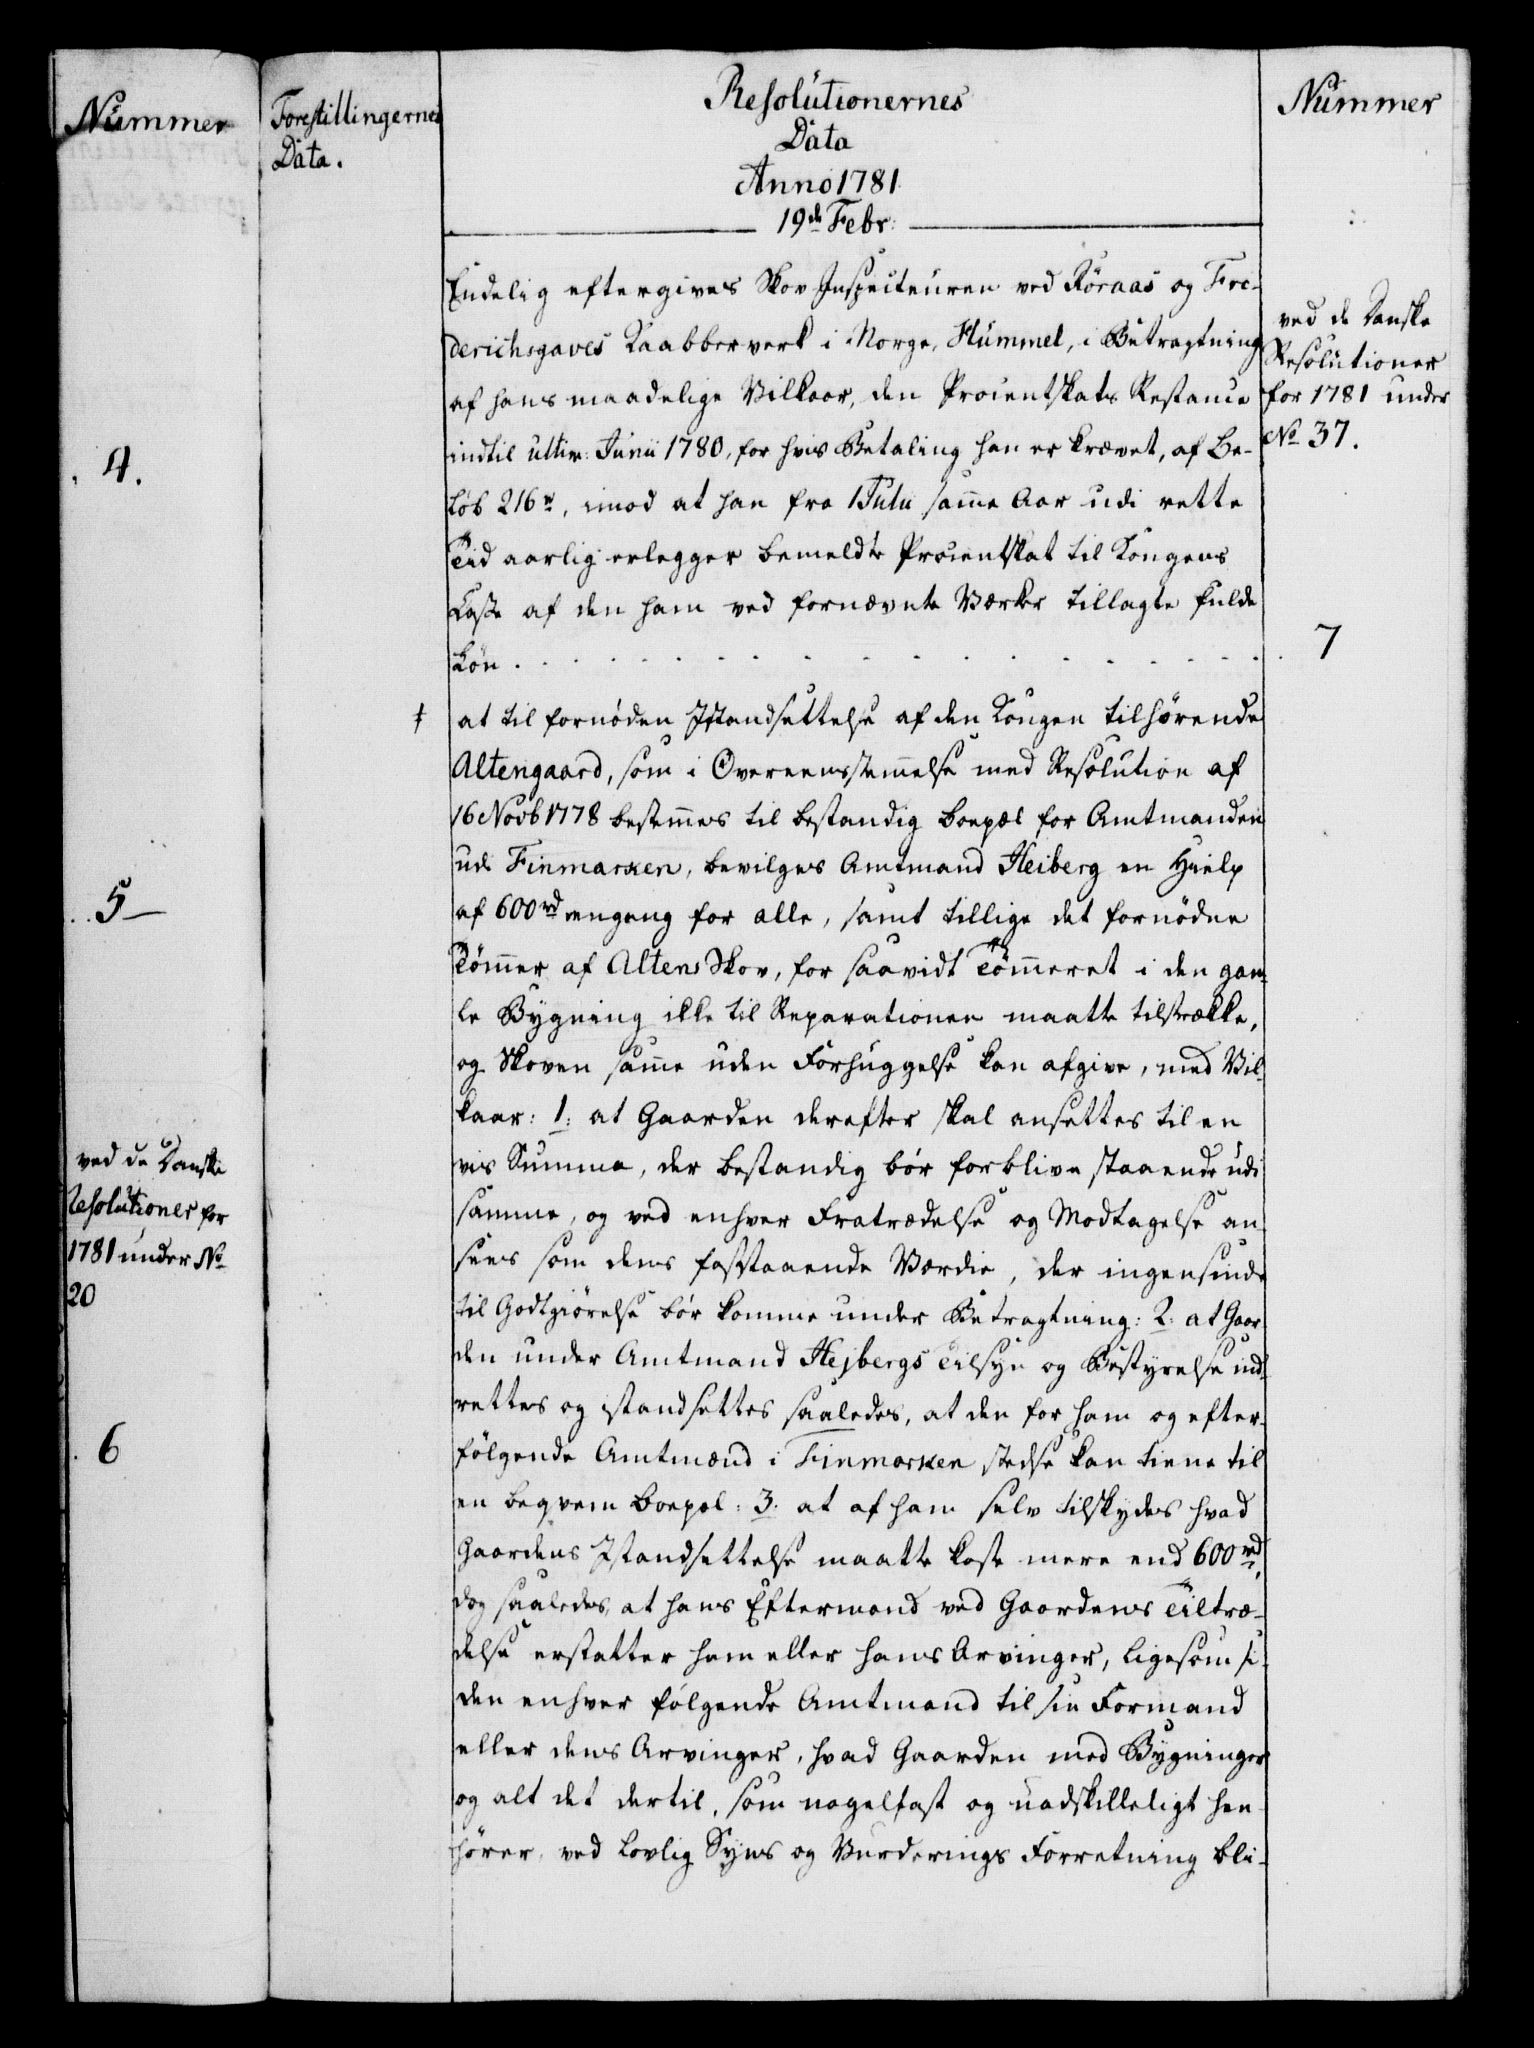 Nummer
4.
5
ved de Danske
Resolutioner for
1781 under No
20
6
Forestillingernes
Data.
Resolutionernes
Data
Anno 1781
19de Febr:
Endelig eftergives Skov Inspecteuren ved Röraas og Fre-
derichsgaves Kaabberverk i Norge, Hummel, i Betragtning
af hans maadelige Vilkaar, den Procentskats Restance
indtil ultim: Junii 1780, for hvis Betaling han er krævet, af Be-
löb 216 rd, imod at han fra 1 Julii samme Aar udi rette
Tid aarlig erlegger bemeldte Procentskat til Kongens
Casse af den ham ved fornævnte Værker tillagte fulde
Lön . . . . . . . . . . . . . . . .
‡ at til fornöden Istandsettelse af den Kongen tilhörende
Altengaard, som i Overeensstemmelse med Resolution af
16 Novb 1778 bestemmes til bestandig Boepæl for Amtmanden
udi Finmarken, bevilges Amtmand Heiberg en Hielp
af 600 rd engang for alle, samt tillige det fornödne
Tömmer af Altens Skov, for saavidt Tömmeret i den gam-
le Bygning ikke til Reparationen maatte tilstrække,
og Skoven samme uden Forhuggelse kan afgive, med Vil-
kaar: 1. at Gaarden derefter skal ansettes til en
vis Summa, der bestandig bör forblive staaende udi
samme, og ved enhver Fratrædelse og Modtagelse an-
sees som dens faststaaende Værdie, der ingensinde
til Godtgiörelse bör komme under Betragtning: 2. at Gaar
den under Amtmand Hejbergs Tilsyn og Bestyrelse ind-
rettes og istandsettes saaledes, at den for ham og efter-
fölgende Amtmænd i Finmarken stedse kan tiene til
en beqvem Boepæl: 3. at af ham selv tilskydes hvad
Gaardens Istandsettelse maatte koste mere end 600 rd,
dog saaledes, at hans Eftermand ved Gaardens Tiltræ-
delse erstatter ham eller hans Arvinger, ligesom si-
den enhver fölgende Amtmand til sin Formand
eller dens Arvinger, hvad Gaarden med Bygninger
og alt det dertil, som nagelfast og uadskilleligt hen-
hörer, ved lovlig Syns og Vurderings Forretning bli-
Nummer
ved de Danske
Resolutioner
for 1781 under
No 37.
7